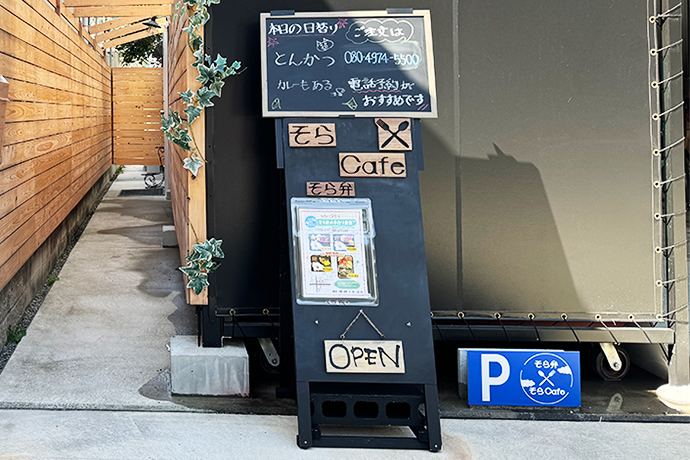 本日の日替り
とんかつ
カレーもある
ご注文は
080-4974-5500
電話予約が
おすすめです
そら
Cafe
そら弁
OPEN
P
そら弁
そらCafe